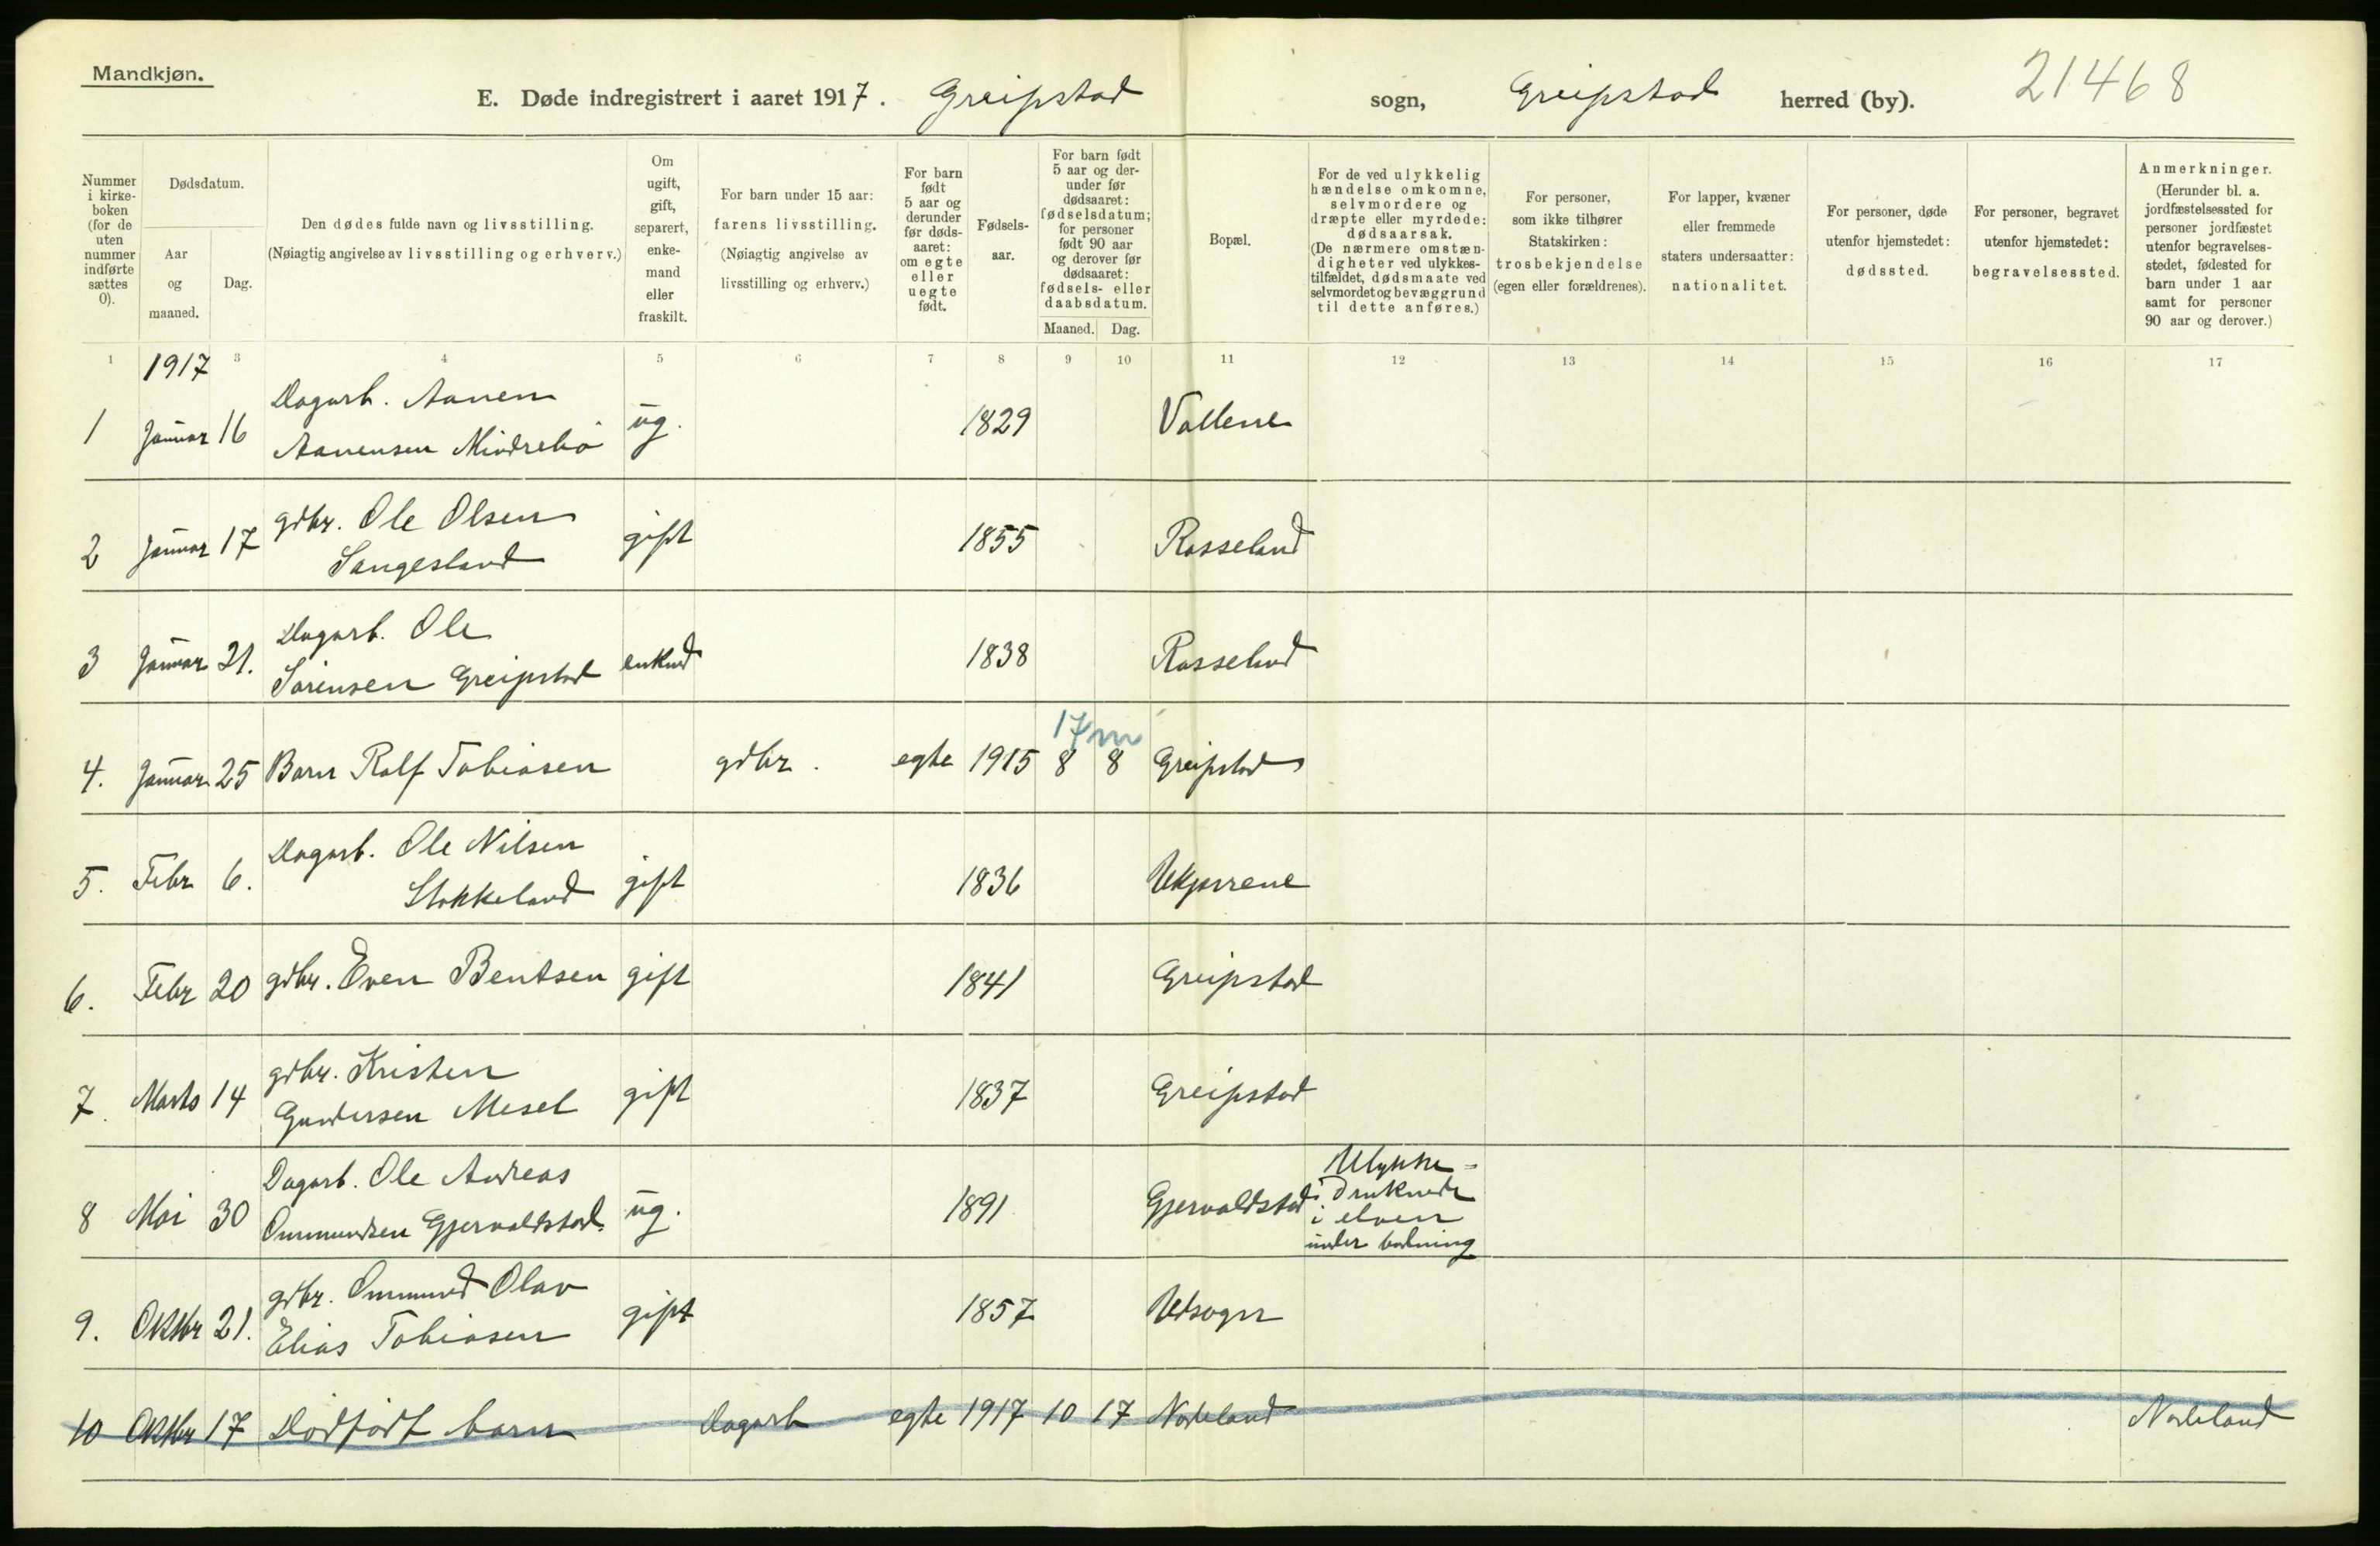 Mandkjøn.
E. Døde indregistrert i aaret 1917. Greipstad sogn, Greipstad herred (by). 21468
Nummer i kirke- boken (for de uten nummer indførte sættes 0).
Dødsdatum.
Aar og maaned.
Dag.
Den dødes fulde navn og livsstilling.
(Nøiagtig angivelse av livsstilling og erhverv.)
Om ugift, gift, separert, enke- mand eller fraskilt.
For barn under 15 aar: farens livsstilling.
(Nøiagtig angivelse av livsstilling og erhverv.)
For barn født 5 aar og derunder før døds- aaret: om egte eller uegte født.
Fødsels- aar.
For barn født 5 aar og der- under før dødsaaret: fødselsdatum; for personer født 90 aar og derover før dødsaaret: fødsels- eller daabsdatum.
Maaned. Dag.
Bopæl.
For de ved ulykkelig hændelse omkomne, selvmordere og dræpte eller myrdede: dødsaarsak. (De nærmere omstæn- digheter ved ulykkes- tilfældet, dødsmaate ved selvmordet og bevæggrund til dette anføres.)
For personer, som ikke tilhører Statskirken: trosbekjendelse (egen eller forældrenes).
For lapper, kvæner eller fremmede staters undersaatter: nationalitet.
For personer, døde utenfor hjemstedet: dødssted.
For personer, begravet utenfor hjemstedet: begravelsessted.
Anmerkninger. (Herunder bl. a. jordfæstelsessted for personer jordfæstet utenfor begravelses- stedet, fødested for barn under 1 aar samt for personer 90 aar og derover.)
1 3 4 5 6 7 8 9 10 11 12 13 14 15 16 17
1917
Dagarb. Aanen
1 Januar 16 Aanensen Mindrebö ug. 1829 Vallene
gdbr. Ole Olsen
2 Januar 17 Sangesland gift 1855 Rosseland
Dagarb. Ole
3 Januar 21. Sörensen Greipstad enkmd 1838 Rosseland
17 m
4. Januar 25 Barn Ralf Tobiasen gdbr. egte 1915 8 8 Greipstad
Dagarb. Ole Nilsen
5. Febr 6. Stokkeland gift 1836
6. Febr 20 gdbr. Even Bentsen gift 1841 Greipstad
gdbr. Kristen
7. Marts 14 Gundersen Mesel gift 1837 Greipstad
Dagarb. Ole Andreas
8 Mai 30 Ommundsen Gjervoldstad. ug. 1891 Gjervoldstad Ulykke = druknede
i elven
under badning
gdbr. Ommund Olav
9. Oktbr 21. Elias Tobiasen gift 1857 Udsogn
10 Oktbr 17 Dödfödt barn Dagarb egte 1917 10 17 Nodeland Nodeland